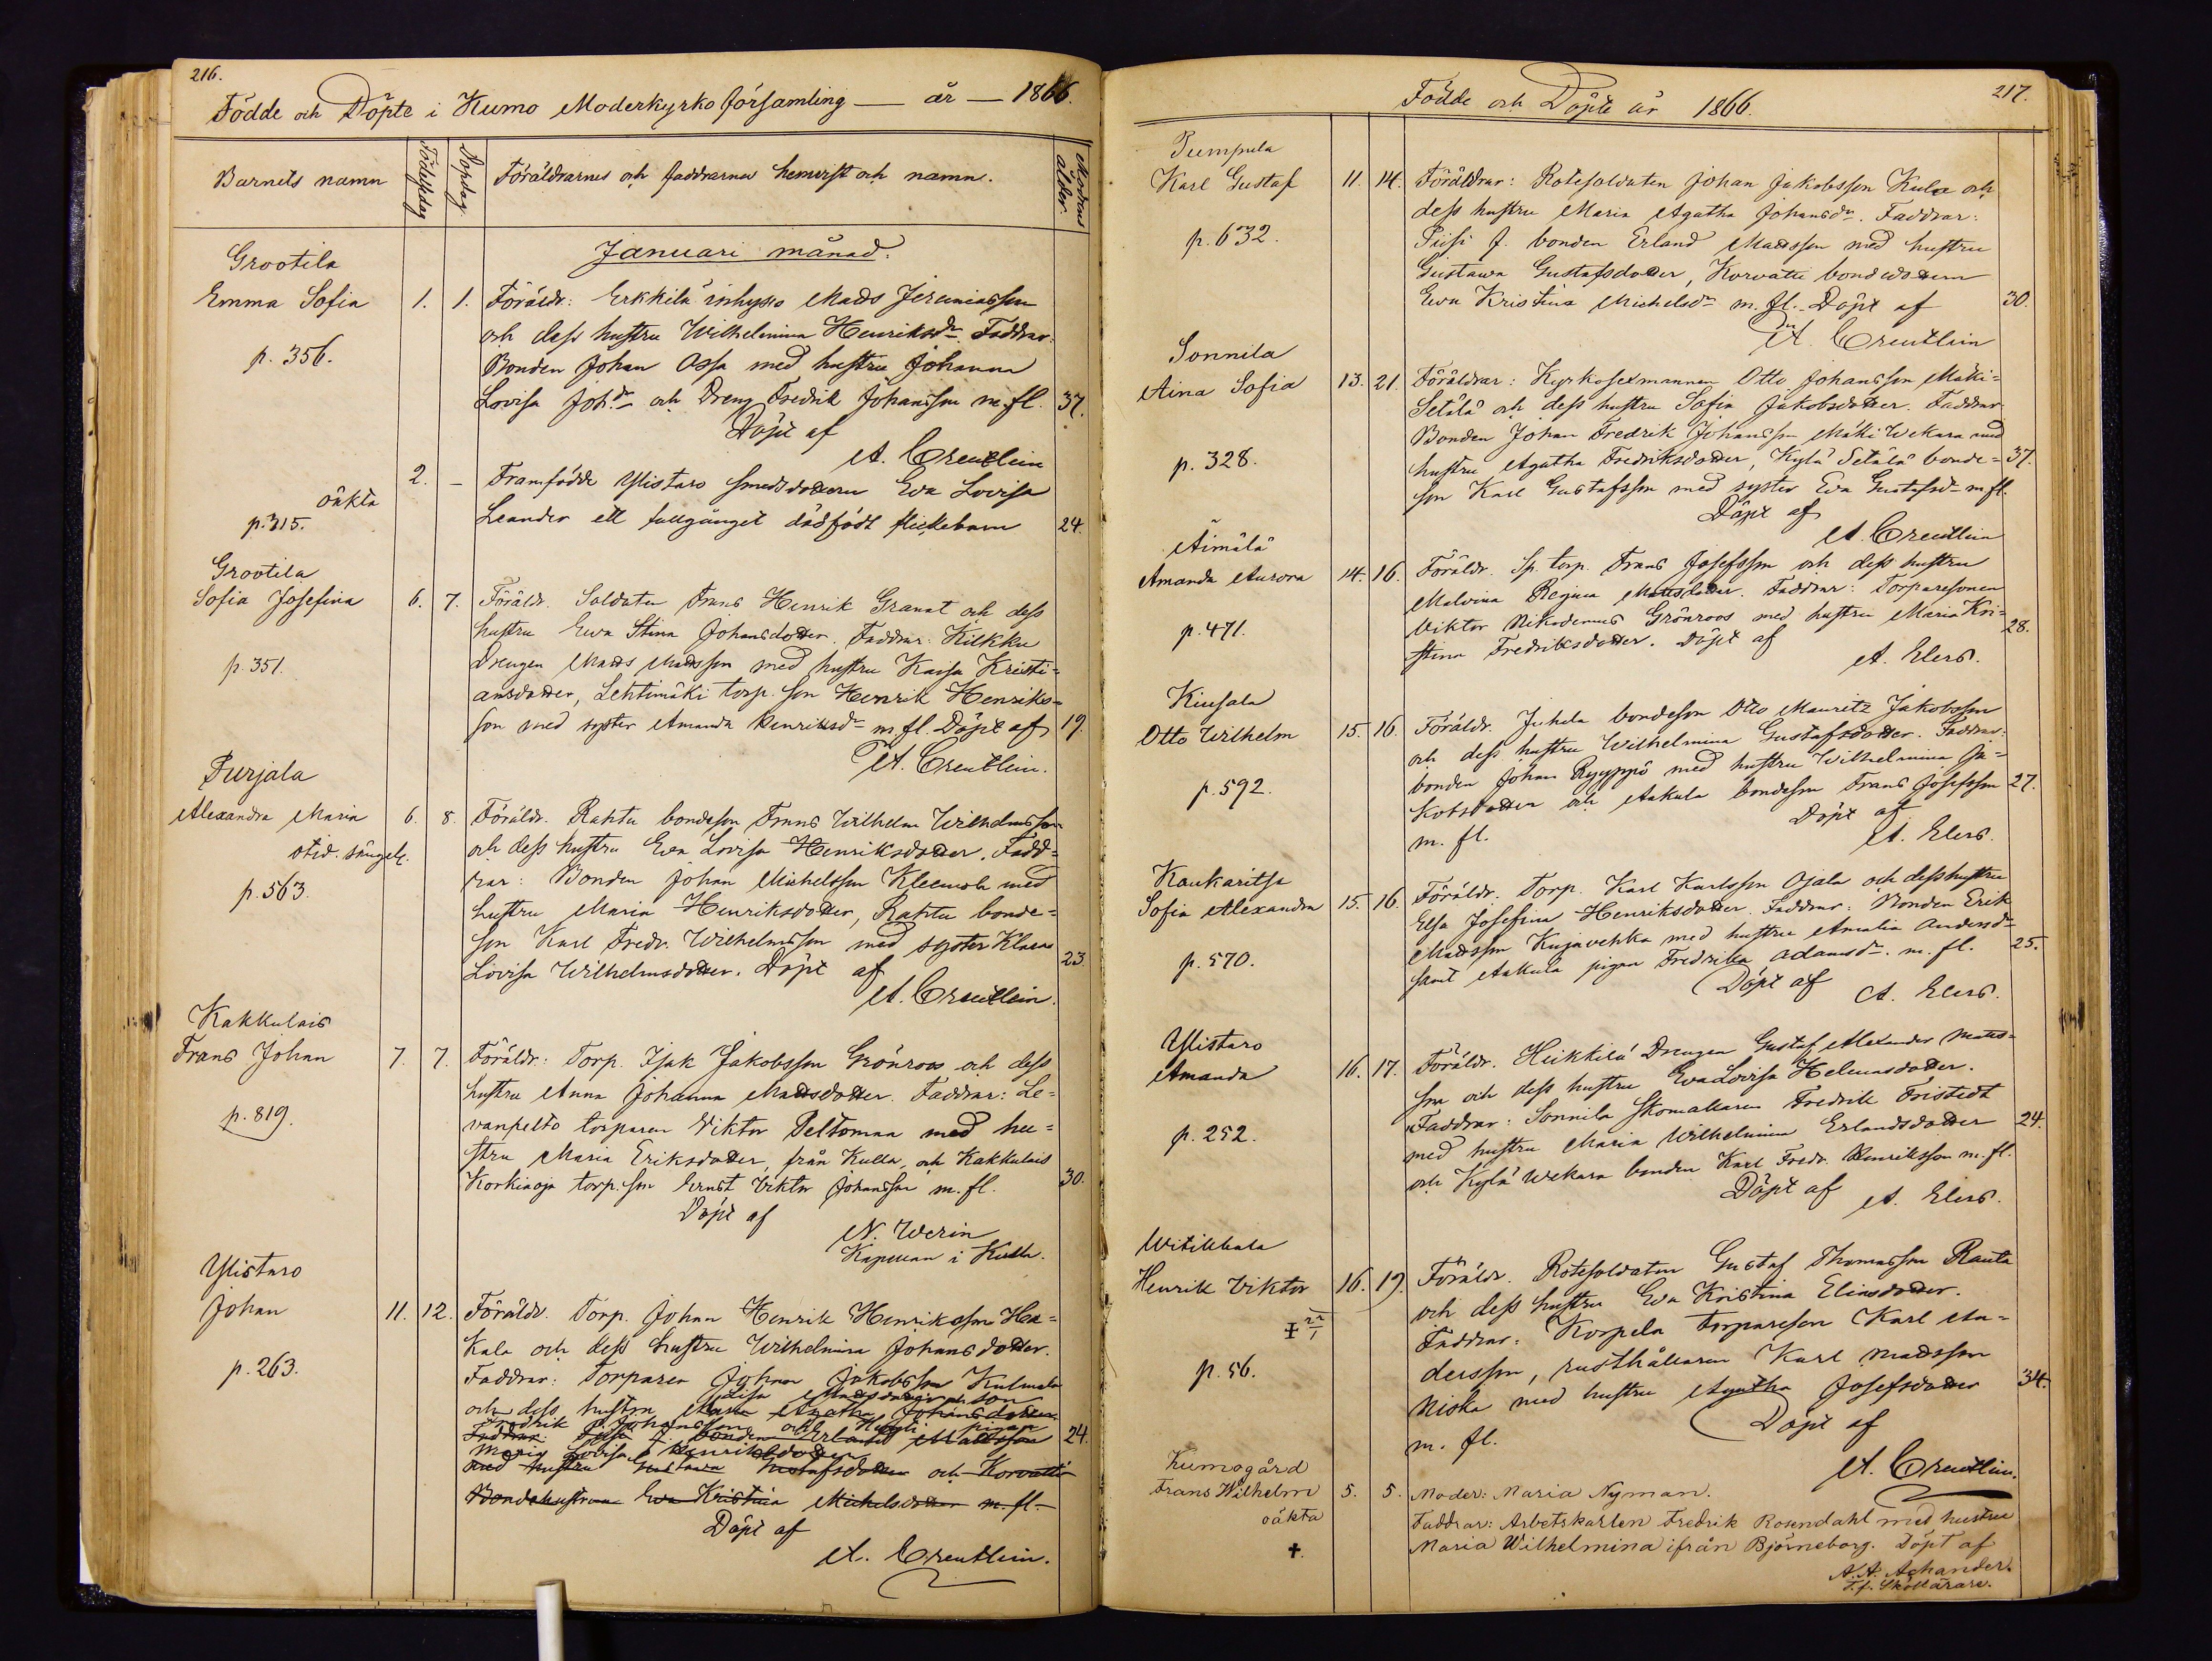 216.
Födde och Döpte i Kumo Moderkyrko församling — år — 1866.
Barnets namn
Födelsedag
Dopdag
Föräldrarnes och faddrarnes hemvist och namn.
Modrens ålder.
Januari månad.
Grootila
Emma Sofia 1. 1. Föräldr: Erkkilä inhyses Mads Jeremiasson
och dess hustru Wilhelmina Henriksdr. Faddrar:
p. 356. Bonden Johan Ossa med hustru Johanna
Lovisa Joh.dr och Dreng Fredrik Johansson m. fl. 37.
Döpt af
A. Creutlein
2. – Framfödde Ylistaro smedsdottern Eva Lovisa
oäkta
p. 315. Leander ett fullgånget dödfödt flickebarn 24.
Grootila
Sofia Josefina 6. 7. Föräldr. Soldaten Frans Henrik Granat och dess
hustru Eva Stina Johansdotter. Faddrar: Kilkku
p. 351. Drengen Mads Madsson med hustru Kaisa Kristi=
ansdotter, Lehtimäki torp. son Henrik Henriks=
son med syster Amanda Henriksdr m. fl. Döpt af 19.
A. Creutlein.
Purjala
Alexandra Maria 6. 8. Föräldr. Rahtu bondeson Frans Wilhelm Wilhelmsson
otid. sängel. och dess hustru Eva Lovisa Henriksdotter. Fadd=
p. 563. rar: Bonden Johan Michelsson Kleemola med
hustru Maria Henriksdotter, Rahtu bonde=
son Karl Fredr. Wilhelmsson med syster Klara
Lovisa Wilhelmsdotter. Döpt af 23.
A. Creutlein.
Kakkulais
Frans Johan 7. 7. Föräldr: Torp. Isak Jakobsson Grönroos och dess
hustru Anna Johanna Madsdotter. Faddrar: Le=
p. 819. vanpelto torparen Viktor Peltomaa med hu=
stru Maria Eriksdotter, från Kulla, och Kakkulais
Korkiaoja torp. son Ernst Viktor Johansson m. fl. 30.
Döpt af
N. Werin
Kapellan i Kulla.
Ylistaro
Johan 11. 12. Föräldr. Torp. Johan Henrik Henriksson Ha=
kala och dess hustru Wilhelmina Johansdotter.
p. 263. Faddrar: Torparen Johan Jakobsson Kulmala
och dess hustru Maria Agatha Johansdotter
Fredrik Johansson och piga
Faddrar: bonden Erland Madsson 24.
Maria Lovisa Henriksdotter
med hustru Gustava Gustafsdotter och Korvatti
Bondehustrun Eva Kristina Michelsdotter m. fl.
Döpt af
A. Creutlein.
217.
Födde och Döpte år 1866.
Pumpula
Karl Gustaf 11. 14. Föräldrar: Rotesoldaten Johan Jakobsson Kula och
dess hustru Maria Agatha Johansdr. Faddrar:
p. 632. Piisi f. bonden Erland Madsson med hustru
Gustava Gustafsdotter, Korvatti bondedottern
Eva Kristina Michelsdr m. fl. Döpt af 30.
A. Creutlein
Sonnila
Aina Sofia 13. 21. Föräldrar: Kyrkosexmannen Otto Johansson Mäki=
Setälä och dess hustru Sofia Jakobsdotter. Faddrar
Bonden Johan Fredrik Johansson Mäki Wekara med
p. 328. hustru Agatha Fredriksdotter, Kylä Setälä bonde= 37.
son Karl Gustafsson med syster Eva Gustafsdr m fl.
Döpt af
A. Creutlein
Äimälä
Amanda Aurora 14. 16. Föräldr. Sp. torp. Frans Josefsson och dess hustru
Malvina Regina Matsdotter. Faddrar: Torparesonen
p. 471. Viktor Nikodemus Grönroos med hustru Maria Kri=
stina Fredriksdotter. Döpt af 28.
A. Elers.
Kiusala
Otto Wilhelm 15. 16. Föräldr. Juhela bondeson Otto Mauritz Jakobsson
och dess hustru Wilhelmina Gustafsdotter. Faddrar:
p. 592. bonden Johan Ryyppö med hustru Wilhelmina Ja=
kobsdotter och Aakula bondeson Frans Josefsson 27.
m. fl. Döpt af
A. Elers.
Kaukaritsa
Sofia Alexandra 15. 16. Föräldr. Torp. Karl Karlsson Ojala och dess hustru
Elsa Josefina Henriksdotter. Faddrar: Bonden Erik
p. 570. Madsson Kujavehka med hustru Amalia Andersdr
samt Aakula pigan Fredrika Adamsdr. m. fl. 25.
Döpt af
A. Elers.
Ylistaro
Amanda 16. 17. Föräldr. Heikkilä Drengen Gustaf Alexander Mats=
son och dess hustru Eva Lovisa Helenasdotter.
Faddrar: Sonnila Skomakaren Fredrik Fristedt
p. 252. med hustru Maria Wilhelmina Erlandsdotter 24.
och Kylä Wekara bonden Karl Fredr. Henriksson m. fl.
Döpt af
A. Elers.
Witikkala
Henrik Viktor 16. 19. Föräldr. Rotesoldaten Gustaf Thomasson Rauta
och dess hustru Eva Kristina Eliasdotter.
‡ 22/1 Faddrar: Korpela torpareson Karl An=
p. 56. dersson, rusthållaren Karl Madsson
Niska med hustru Agatha Josefsdotter 34.
m. fl. Döpt af
A. Creutlein.
Kumogård
Frans Wilhelm 5. 5. Moder: Maria Nyman.
oäkta Faddrar: Arbetskarlen Fredrik Rosendahl med hustru
✝. Maria Wilhelmina ifrån Björneborg. Döpt af
A. A. Achander.
T. f. Skollärare.